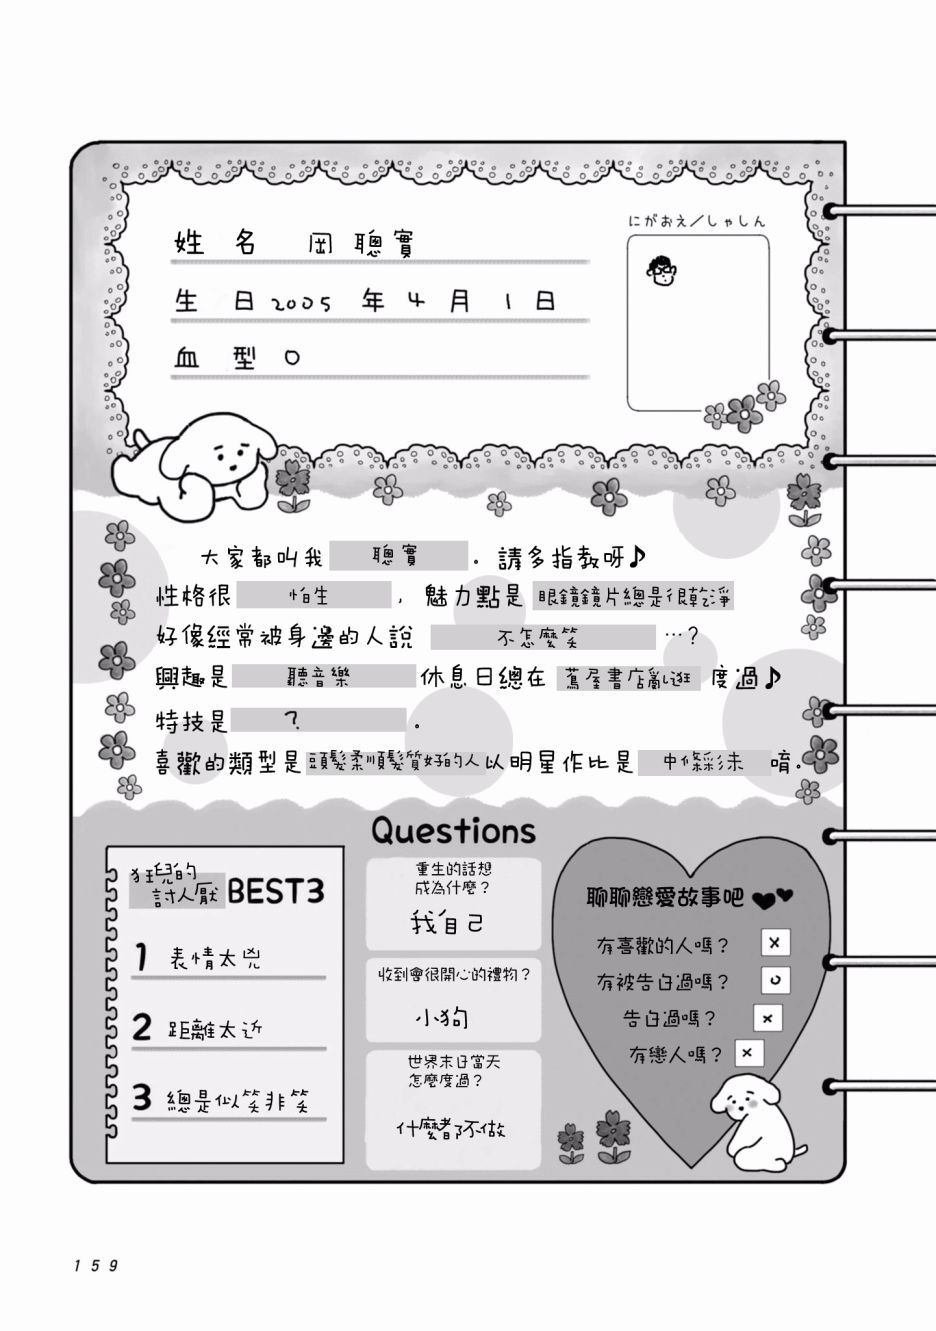 にがおえ/しゃしん
姓 名 岡 聰實
生 日 2005 年 4 月 1 日
血 型 O
大家都叫我 聰實 。請多指教呀♪
性格很 怕生 ，魅力點是 眼鏡鏡片總是很乾淨
好像經常被身邊的人說 不怎麼笑 …?
興趣是 聽音樂 休息日總在 蔦屋書店亂逛 度過♪
特技是 ? 。
喜歡的類型是 頭髮柔順髮質好的人 以明星作比是 中條彩未 唷。
Questions
狂兒的
討人厭 BEST3
1 表情太兇
2 距離太近
3 總是似笑非笑
重生的話想
成為什麼？
我自己
收到會很開心的禮物？
小狗
世界末日當天
怎麼度過？
什麼都不做
聊聊戀愛故事吧
有喜歡的人嗎？ ×
有被告白過嗎？ ○
告白過嗎？ ×
有戀人嗎？ ×
159